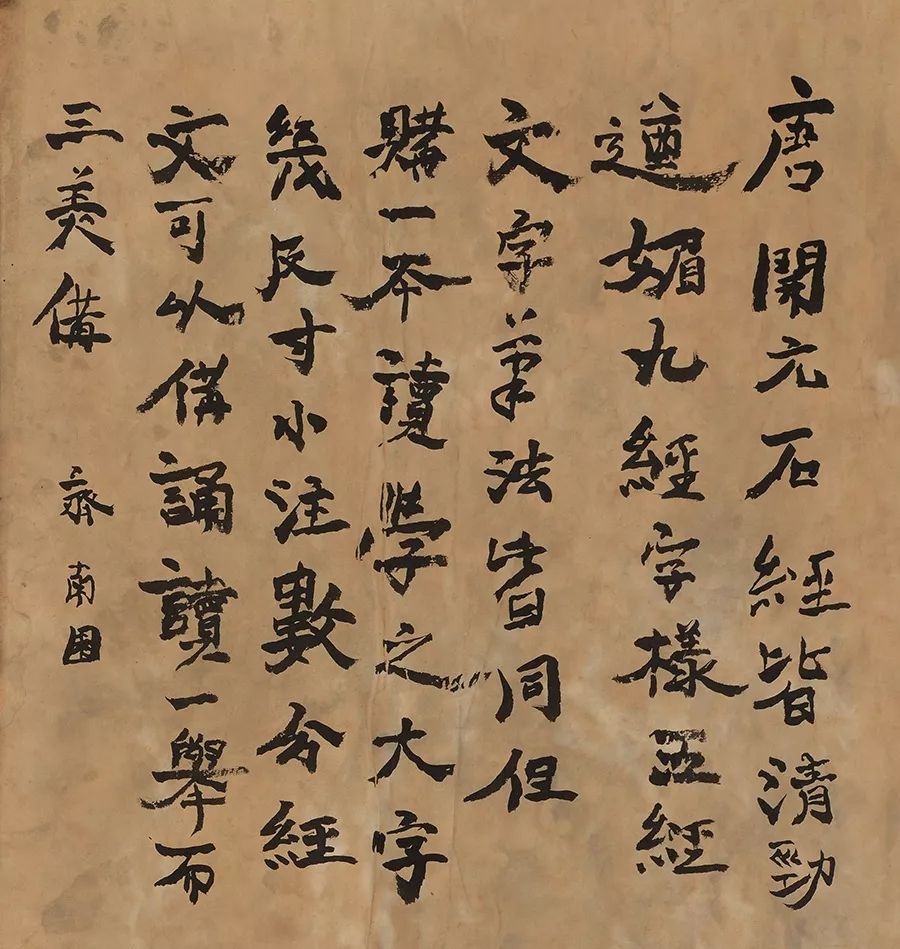 唐開元石經皆清勁
遒媚九經字樣五經
文字筆法皆同但
購一本讀學之大字
幾及寸小注數分經
文可以備誦讀一舉而
三美備 南園